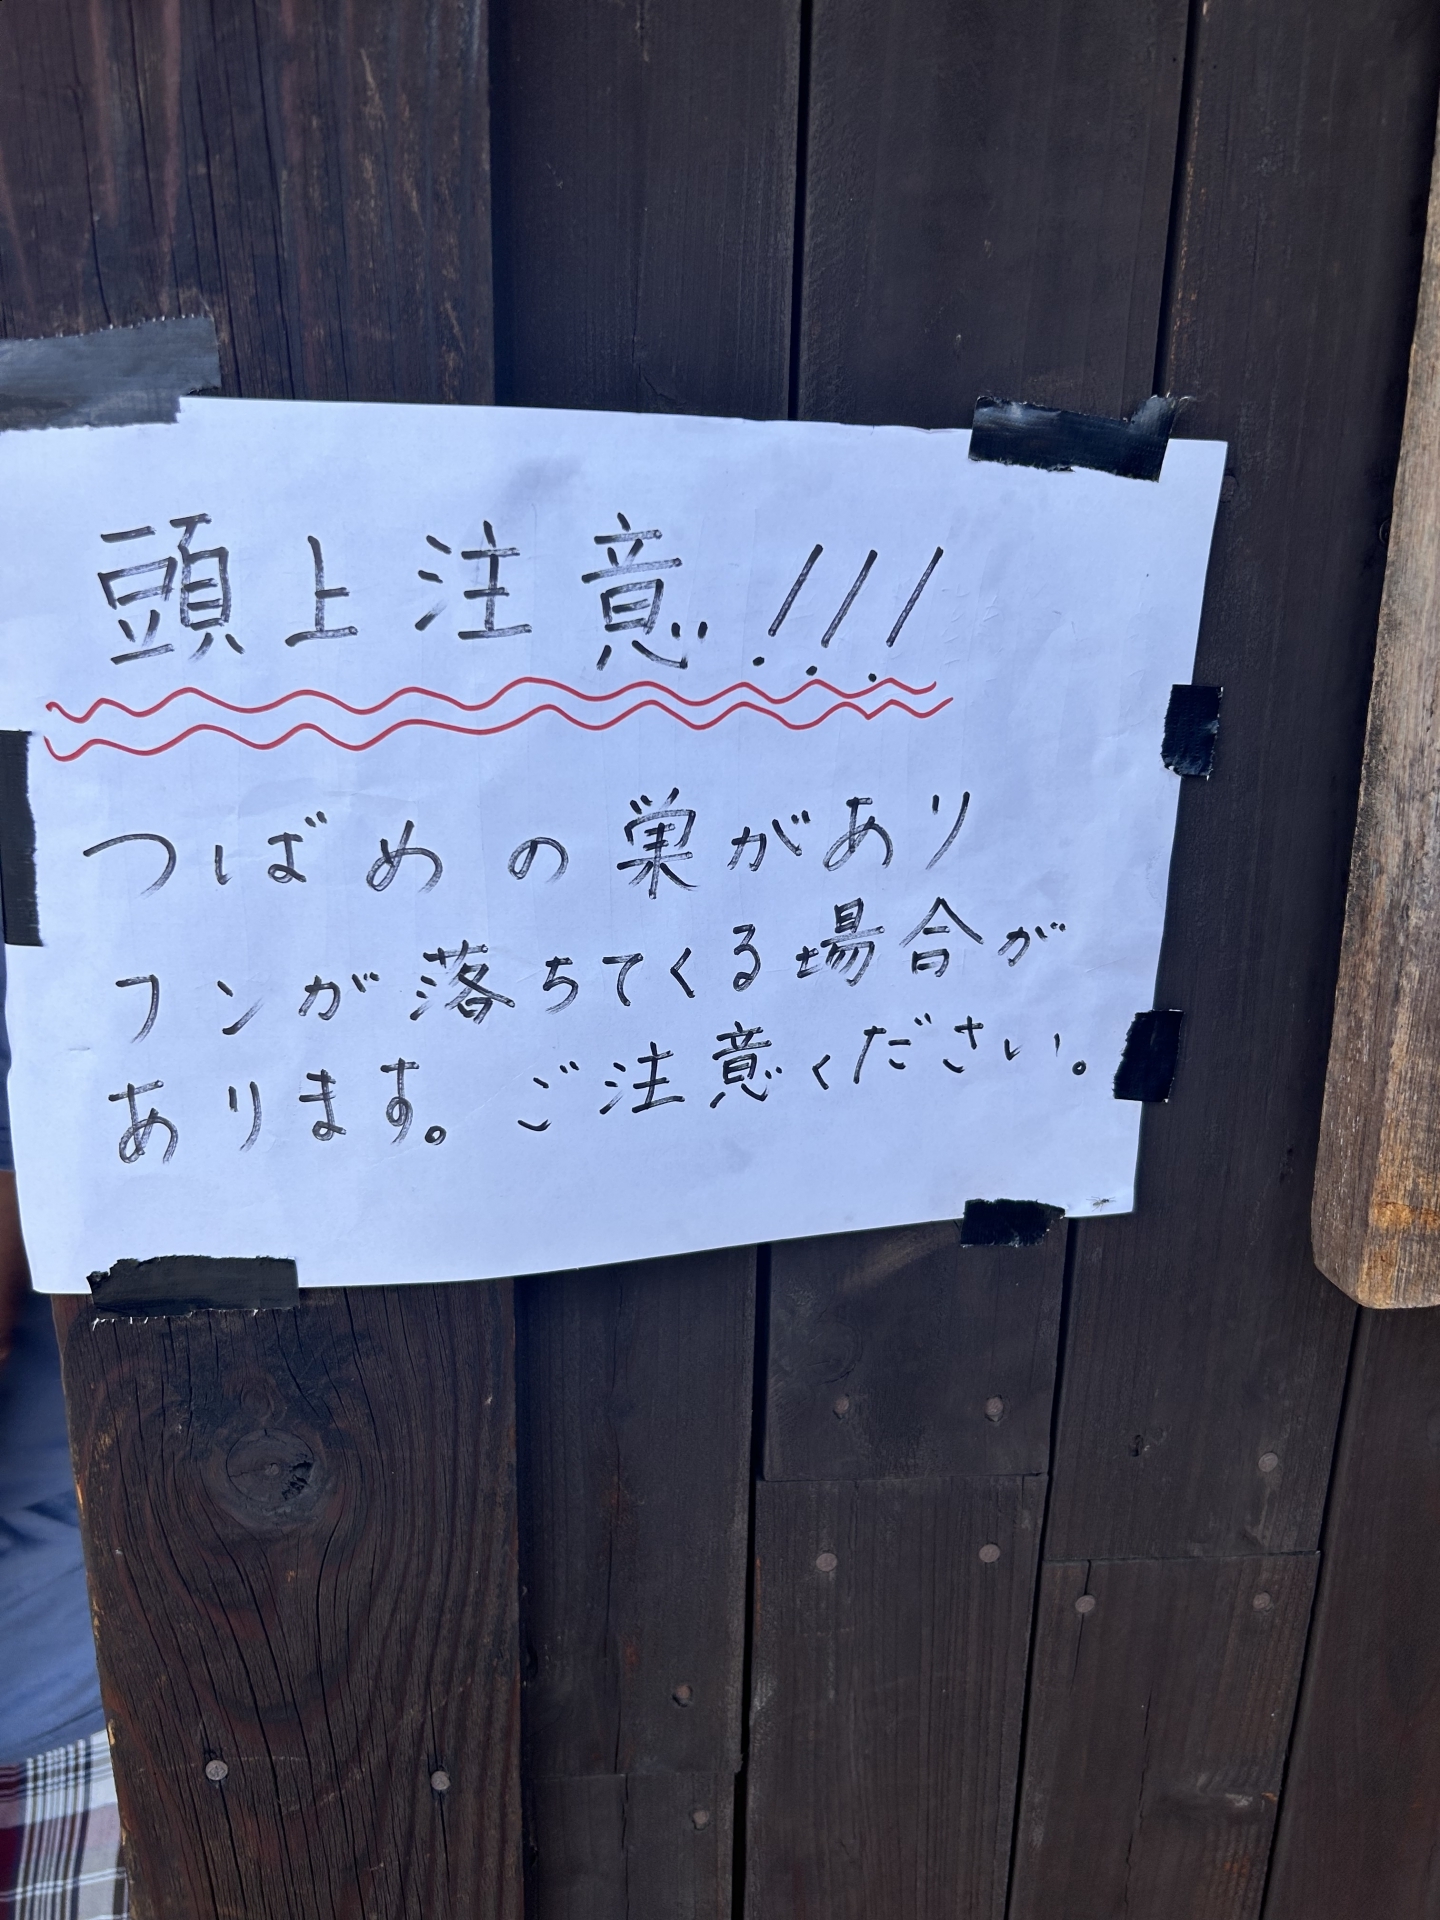 頭上注意!!!
つばめの巣があり
フンが落ちてくる場合が
あります。ご注意ください。